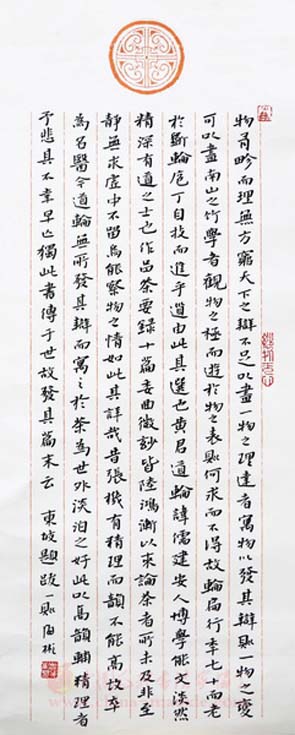 物有畛而理無方窮天下之辯不足以盡一物之理達者寓物以發其辯則一物之變
可以盡南山之竹學者觀物之極而遊於物之表則何求而不得故輪扁行年七十而老
於斲輪庖丁自技而進乎道由此其選也黃君道輪諱儒建安人博學能文淡然
精深有道之士也作品茶要錄十篇委曲微妙皆陸鴻漸以來論茶者所未及非至
靜無求虛中不留烏能察物之情如此其詳哉昔張機有精理而韻不能高故卒
為名醫今道輪無所發其辯而寓之於茶為世外淡泊之好此以高韻輔精理者
予悲其不幸早亡獨此書傳于世故發其篇末云 東坡題跋一則 彬